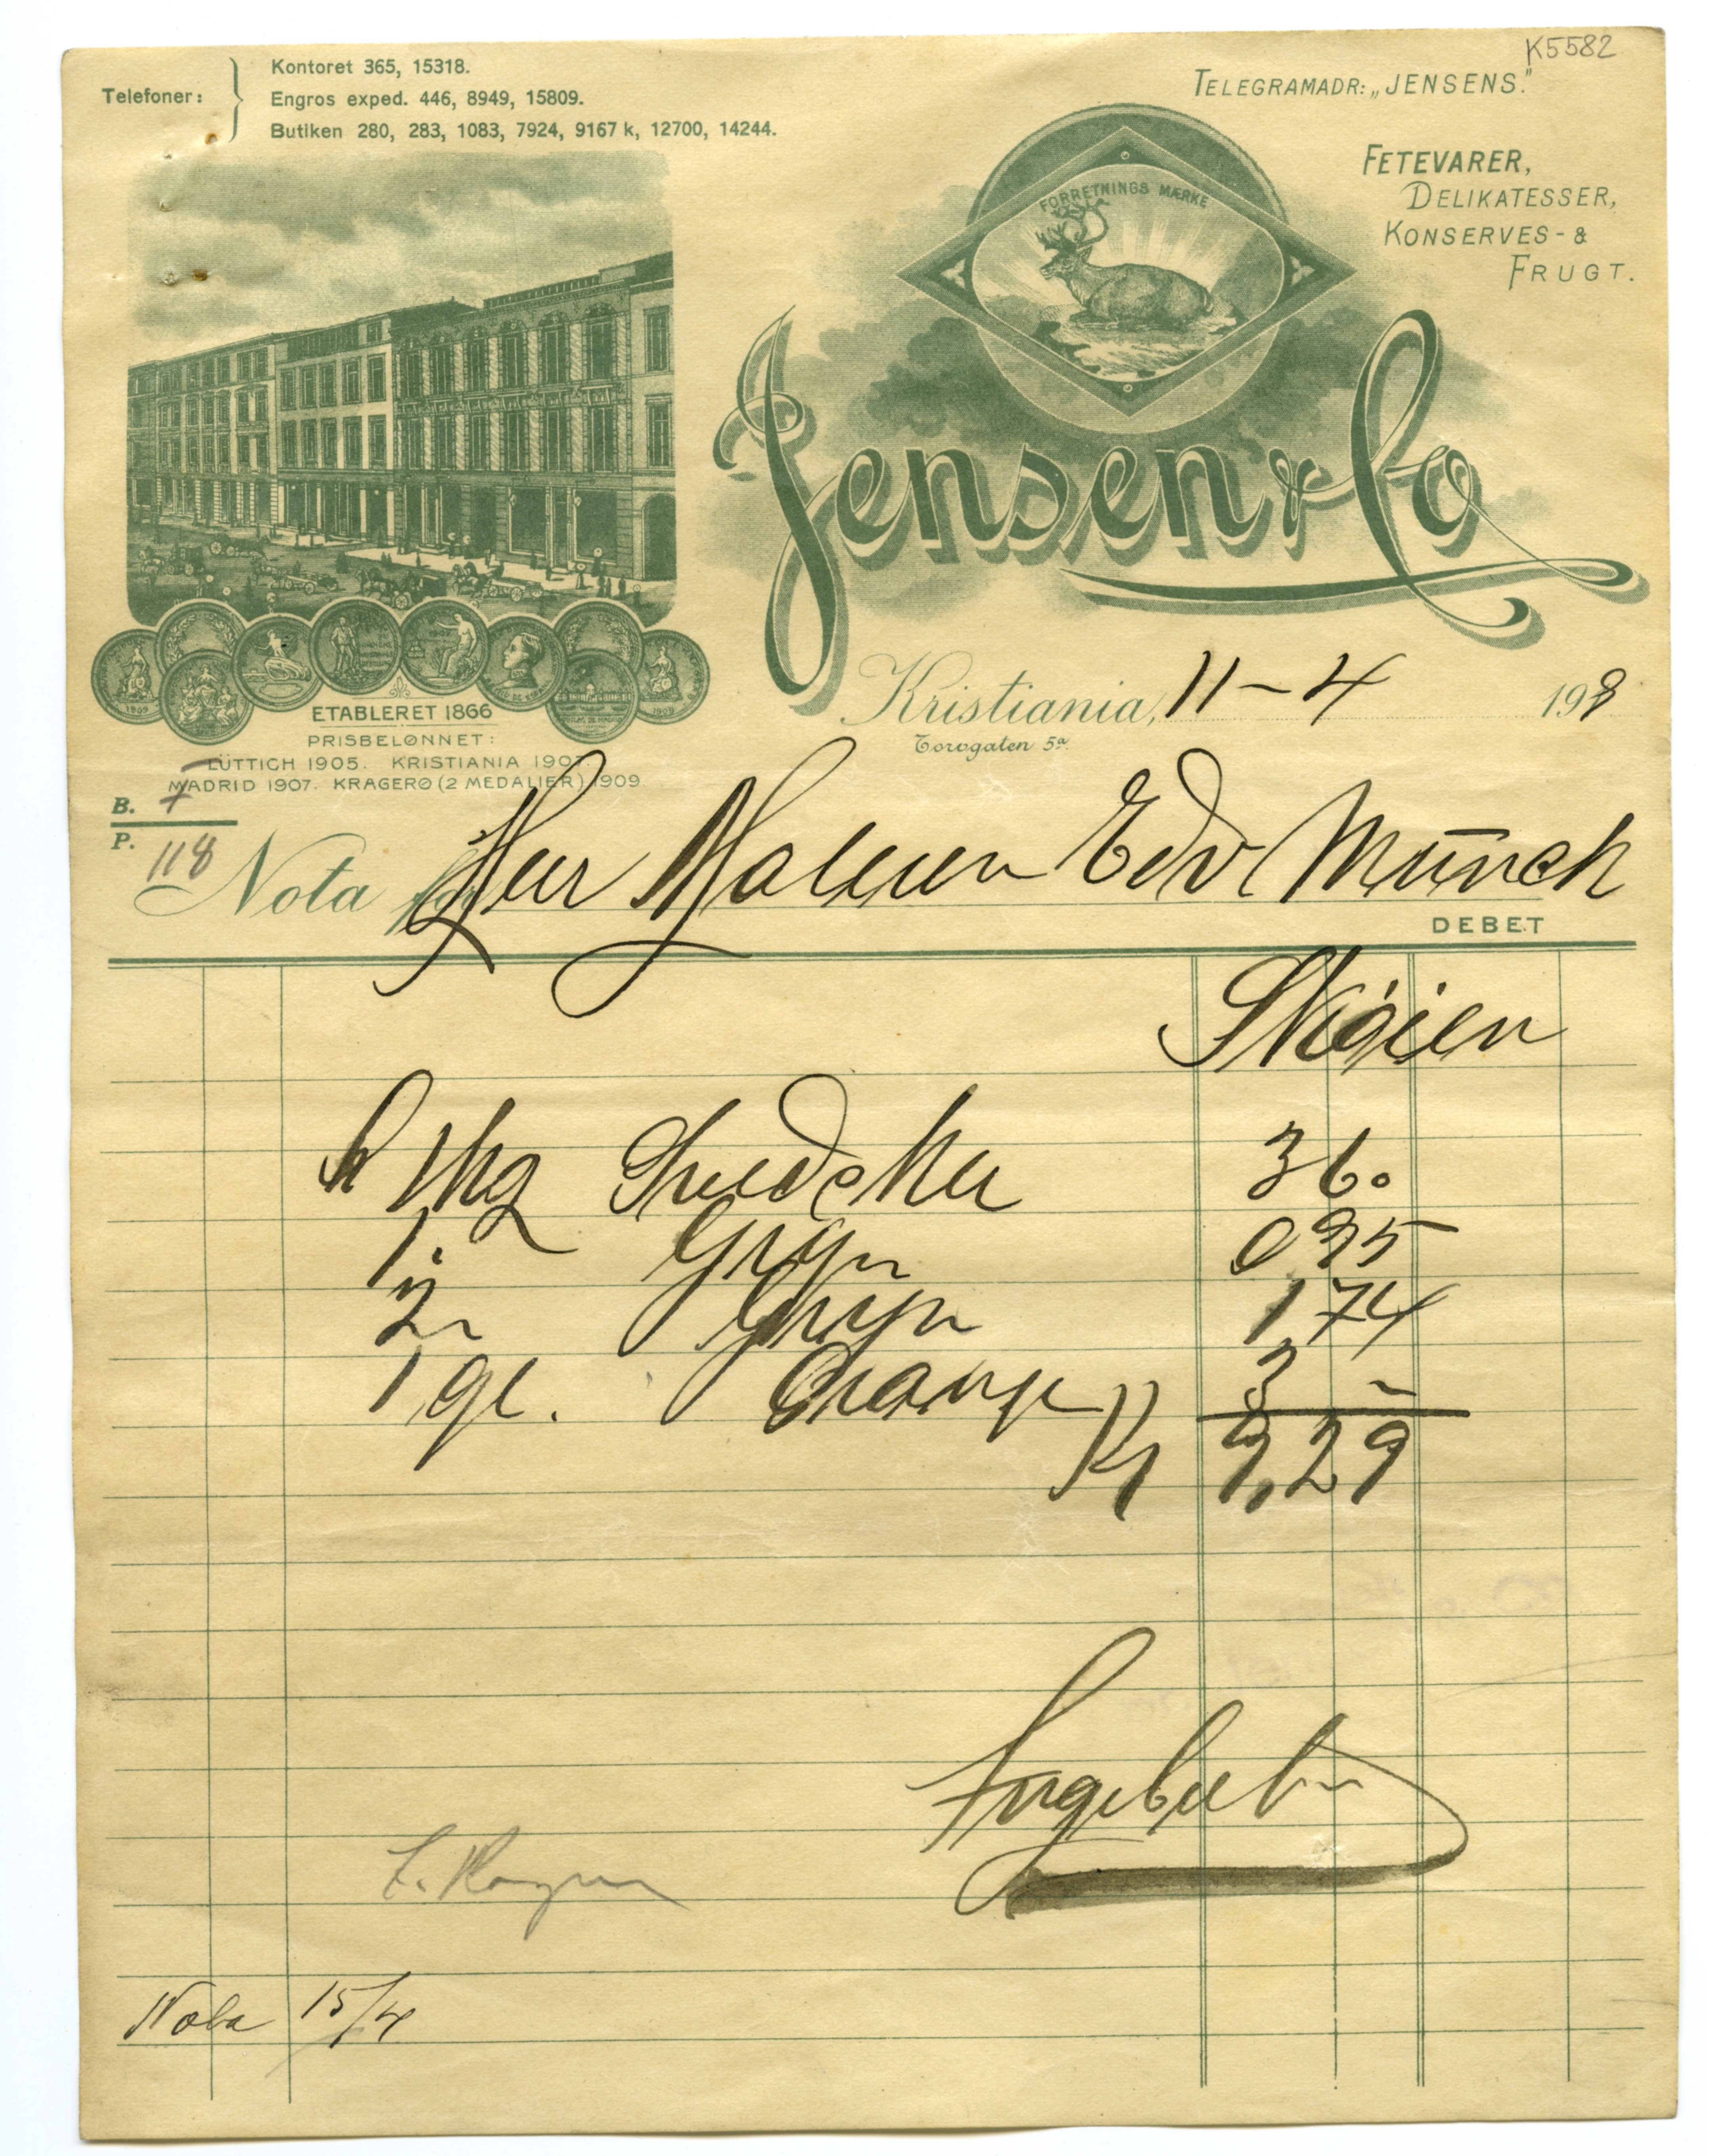 K5582
Telefoner:
Kontoret 365, 15318.
Engros exped. 446, 8949, 15809.
Butiken 280, 283, 1083, 7924, 9167 k, 12700, 14244.
TELEGRAMADR: „JENSENS."
FETEVARER,
DELIKATESSER,
KONSERVES- &
FRUGT.
FORRETNINGS MÆRKE
Jensen & Co
ETABLERET 1866
PRISBELØNNET:
LÜTTICH 1905. KRISTIANIA 1907.
MADRID 1907. KRAGERØ (2 MEDALIER) 1909
Kristiania, 11-4 198
Torvgaten 5a
B. 7
P. 118
Nota for Herr Maleren Edv Munch
DEBET
Skøien
1 kg 3 60
1. Gryn 0 95
2 Gryn 1,74
1 gl. Orange 3 -
Kr 9,29
Noba 15/4